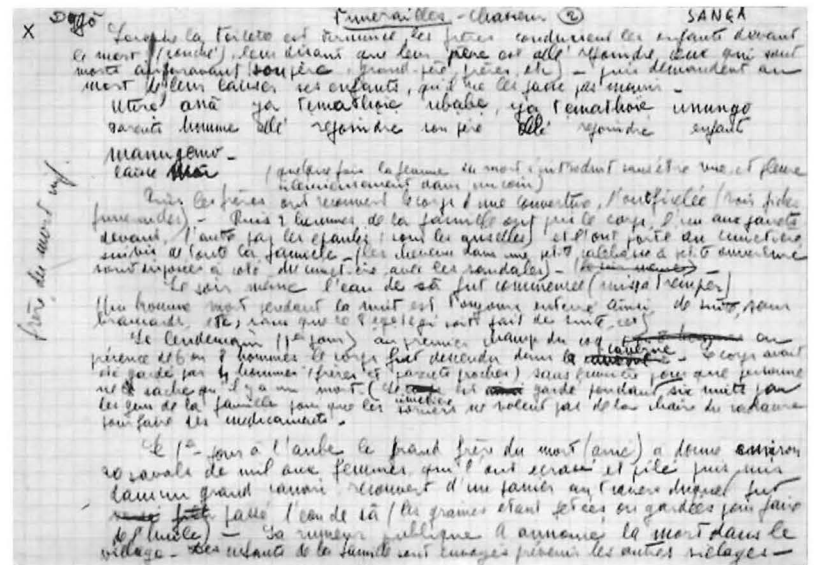 Dogo Funérailles - Chasseur (2) SANGA
X Lorsque la toilette est terminée, les frères conduisent les enfants devant
le mort (couché), leur disant que leur père est allé rejoindre ceux qui sont
morts auparavant (son père, grand-père, frères, etc) - puis demandent au
mort de leur laisser ses enfants, qu'il ne les fasse pas mourir -
parents homme allé rejoindre son père allé rejoindre enfant
laisse
(quelque fois la femme du mort s'introduit sans être vue, et pleure
silencieusement dans un coin)
Puis les frères ont recouvert le corps d'une couverture, l'ont ficelée (voir fiches
funérailles) - Puis 2 hommes de la famille ont pris le corps, l'un aux jarrets
devant, l'autre par les épaules (sous les aisselles) et l'ont porté au cimetière
suivis de toute la famille - (les cheveux dans une petite calebasse à petite ouverture
sont exposés à côté du cimetière avec les sandales) -
Le soir même l'eau de sã fut commencée (mise à tremper)
Un homme mort pendant la nuit est toujours enterré ainsi de suite, sans
sans que ce soit fait de suite,
Le lendemain (1er jour) au premier chant du coq en
présence de 6 ou 8 hommes le corps fut descendu dans la caverne - Le corps avait
été gardé par 4 hommes (frères et parents proches) sans lumière pour que personne
ne sache qu'il y a un mort. (le cimetière est gardé pendant six nuits par
les gens de la famille pour que les sorciers ne volent pas de la chair du cadavre
pour faire des médicaments -
Le 1er jour à l'aube le grand frère du mort (aîné) a donné environ
20 de mil aux femmes, qui l'ont écrasé et pilé puis mis
dans un grand canari recouvert d'un panier au travers duquel fut
passé l'eau de sã (les graines étant jetées ou gardées pour faire
de l'huile) - La rumeur publique a annoncé la mort dans le
village - Des enfants de la famille sont envoyés prévenir les autres villages -
frère du mort inf.